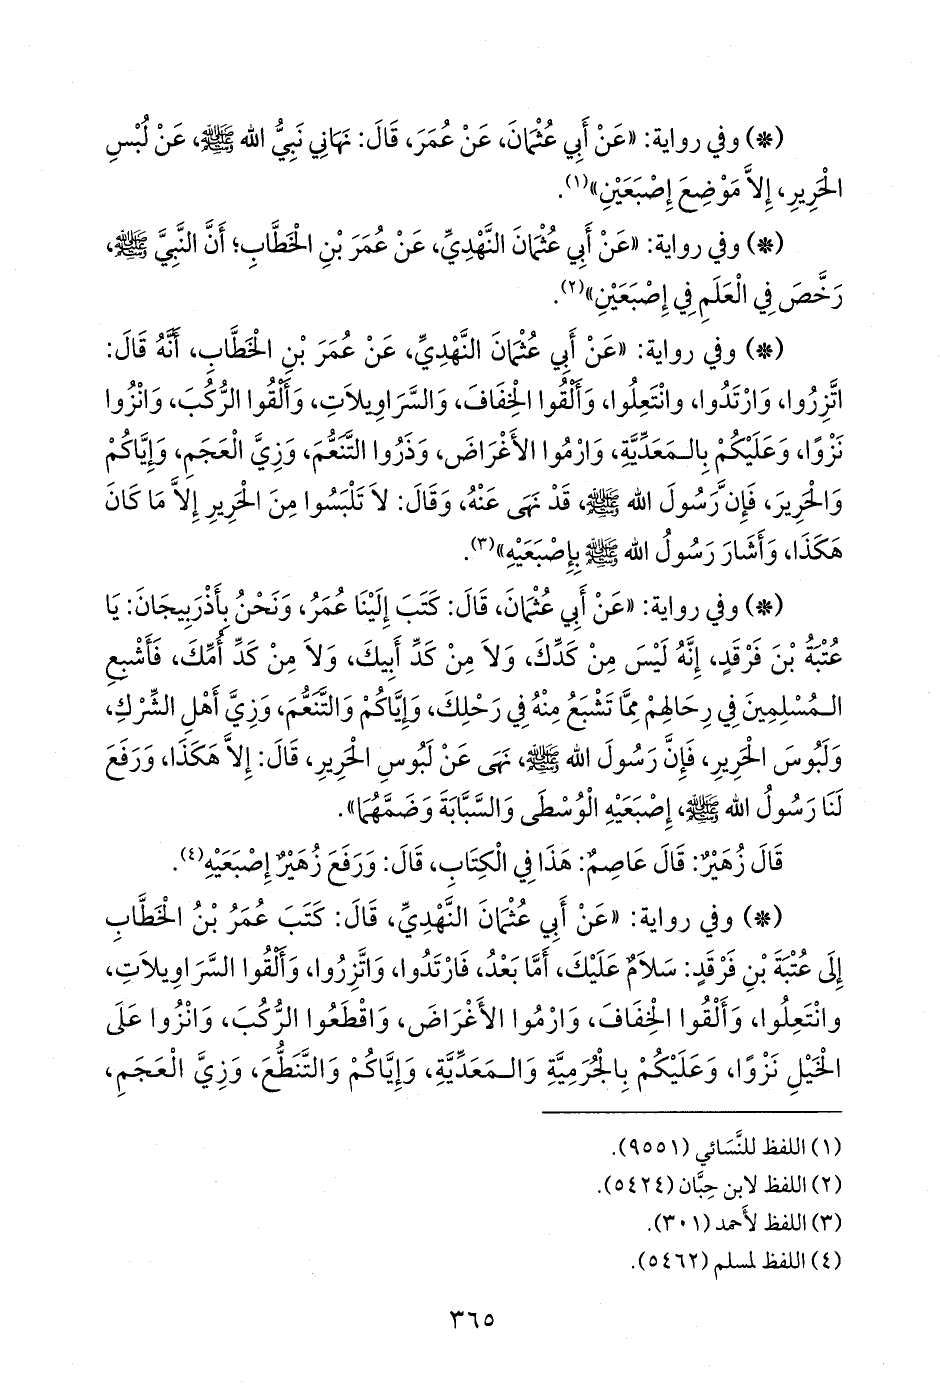 (*) وفي رواية: «عَنْ أَبِي عُثْمَانَ، عَنْ عُمَرَ، قَالَ: نَهَانِي نَبِيُّ الله ﷺ، عَنْ لُبْسِ
الْحَرِيرِ، إِلاَّ مَوْضِعَ إِصْبَعَيْنِ»(١).
(*) وفي رواية: «عَنْ أَبِي عُثْمَانَ النَّهْدِيِّ، عَنْ عُمَرَ بْنِ الْخَطَّابِ؛ أَنَّ النَّبِيَّ ﷺ،
رَخَّصَ فِي الْعَلَمِ فِي إِصْبَعَيْنِ»(٢).
(*) وفي رواية: «عَنْ أَبِي عُثْمَانَ النَّهْدِيِّ، عَنْ عُمَرَ بْنِ الْخَطَّابِ، أَنَّهُ قَالَ:
اتَّزِرُوا، وَارْتَدُوا، وانْتَعِلُوا، وَأَلْقُوا الْخِفَافَ، وَالسَّرَاوِيلاَتِ، وَأَلْقُوا الرُّكُبَ، وَانْزُوا
نَزْوًا، وَعَلَيْكُمْ بِالْمَعَدِّيَّةِ، وَارْمُوا الأَغْرَاضَ، وَذَرُوا التَّنَعُّمَ، وَزِيَّ الْعَجَمِ، وَإِيَّاكُمْ
وَالْحَرِيرَ، فَإِنَّ رَسُولَ الله ﷺ، قَدْ نَهَى عَنْهُ، وَقَالَ: لاَ تَلْبَسُوا مِنَ الْحَرِيرِ إِلاَّ مَا كَانَ
هَكَذَا، وَأَشَارَ رَسُولُ الله ﷺ بِإِصْبَعَيْهِ»(٣).
(*) وفي رواية: «عَنْ أَبِي عُثْمَانَ، قَالَ: كَتَبَ إِلَيْنَا عُمَرُ، وَنَحْنُ بِأَذْرَبِيجَانَ: يَا
عُتْبَةُ بْنَ فَرْقَدٍ، إِنَّهُ لَيْسَ مِنْ كَدِّكَ، وَلاَ مِنْ كَدِّ أَبِيكَ، وَلاَ مِنْ كَدِّ أُمِّكَ، فَأَشْبِعِ
الْمُسْلِمِينَ فِي رِحَالِهِمْ مِمَّا تَشْبَعُ مِنْهُ فِي رَحْلِكَ، وَإِيَّاكُمْ وَالتَّنَعُّمَ، وَزِيَّ أَهْلِ الشِّرْكِ،
وَلَبُوسَ الْحَرِيرِ، فَإِنَّ رَسُولَ الله ﷺ، نَهَى عَنْ لَبُوسِ الْحَرِيرِ، قَالَ: إِلاَّ هَكَذَا، وَرَفَعَ
لَنَا رَسُولُ الله ﷺ، إِصْبَعَيْهِ الْوُسْطَى وَالسَّبَّابَةَ وَضَمَّهُمَا».
قَالَ زُهَيْرٌ: قَالَ عَاصِمٌ: هَذَا فِي الْكِتَابِ، قَالَ: وَرَفَعَ زُهَيْرٌ إِصْبَعَيْهِ(٤).
(*) وفي رواية: «عَنْ أَبِي عُثْمَانَ النَّهْدِيِّ، قَالَ: كَتَبَ عُمَرُ بْنُ الْخَطَّابِ
إِلَى عُتْبَةَ بْنِ فَرْقَدٍ: سَلاَمٌ عَلَيْكَ، أَمَّا بَعْدُ، فَارْتَدُوا، وَاتَّزِرُوا، وَأَلْقُوا السَّرَاوِيلاَتِ،
وانْتَعِلُوا، وَأَلْقُوا الْخِفَافَ، وَارْمُوا الأَغْرَاضَ، وَاقْطَعُوا الرُّكُبَ، وَانْزُوا عَلَى
الْخَيْلِ نَزْوًا، وَعَلَيْكُمْ بِالْجُرْمِيَّةِ وَالْمَعَدِّيَّةِ، وَإِيَّاكُمْ وَالتَّنَطُّعَ، وَزِيَّ الْعَجَمِ،
(١) اللفظ للنَّسَائي (٩٥٥١).
(٢) اللفظ لابن حِبَّان (٥٤٢٤).
(٣) اللفظ لأحمد (٣٠١).
(٤) اللفظ لمسلم (٥٤٦٢).
٣٦٥